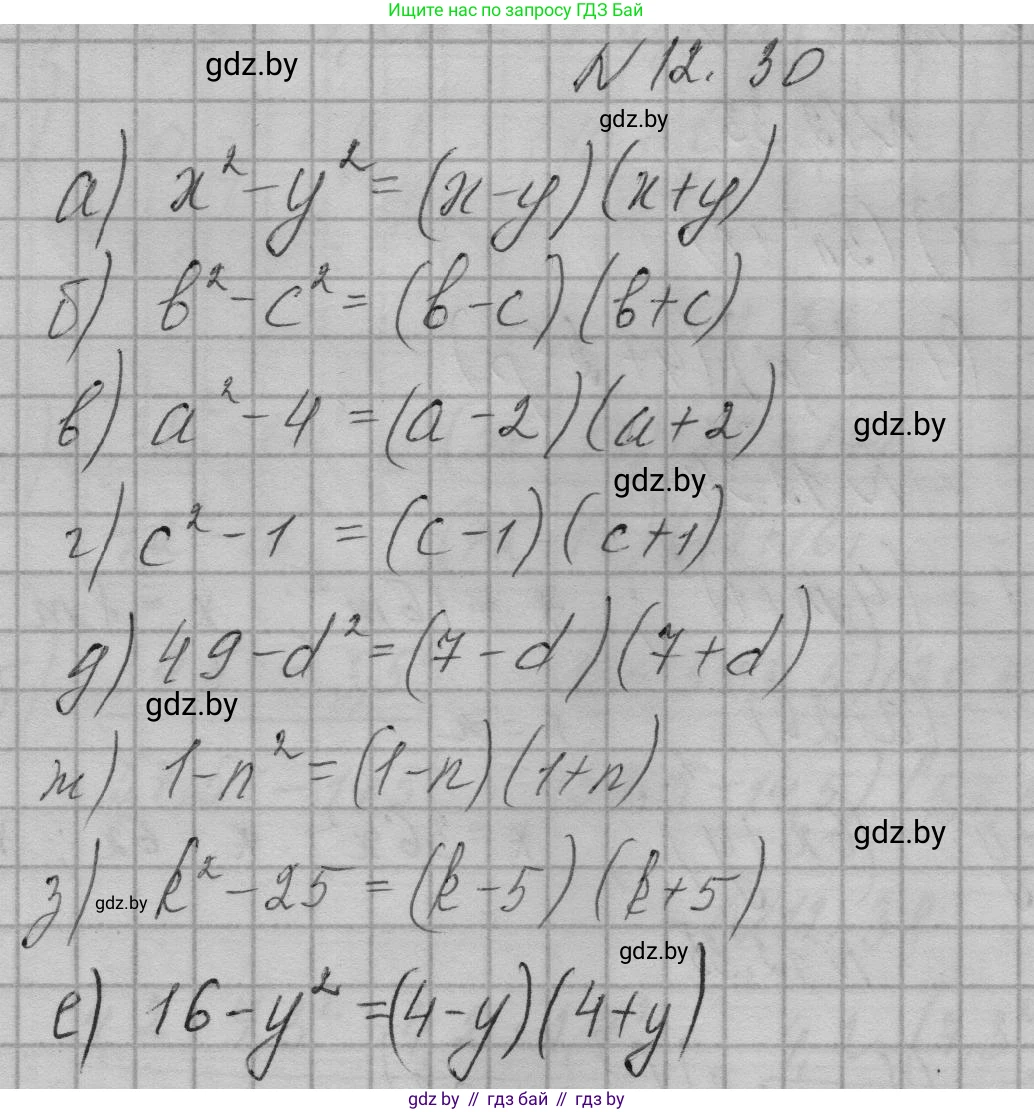 Ищите нас по запросу ГДЗ Бай
gdz.by
N 12. 30
gdz.by
а) x² - y² = (x-y)(x+y)
б) b² - c² = (b-c)(b+c)
в) a² - 4 = (a-2)(a+2)
gdz.by
gdz.by
г) c² - 1 = (c-1)(c+1)
д) 49 - d² = (7-d)(7+d)
gdz.by
ж) 1 - n² = (1-n)(1+n)
gdz.by
з) k² - 25 = (k-5)(k+5)
gdz.by
gdz.by
е) 16 - y² = (4-y)(4+y)
gdz.by // гдз бай // gdz by